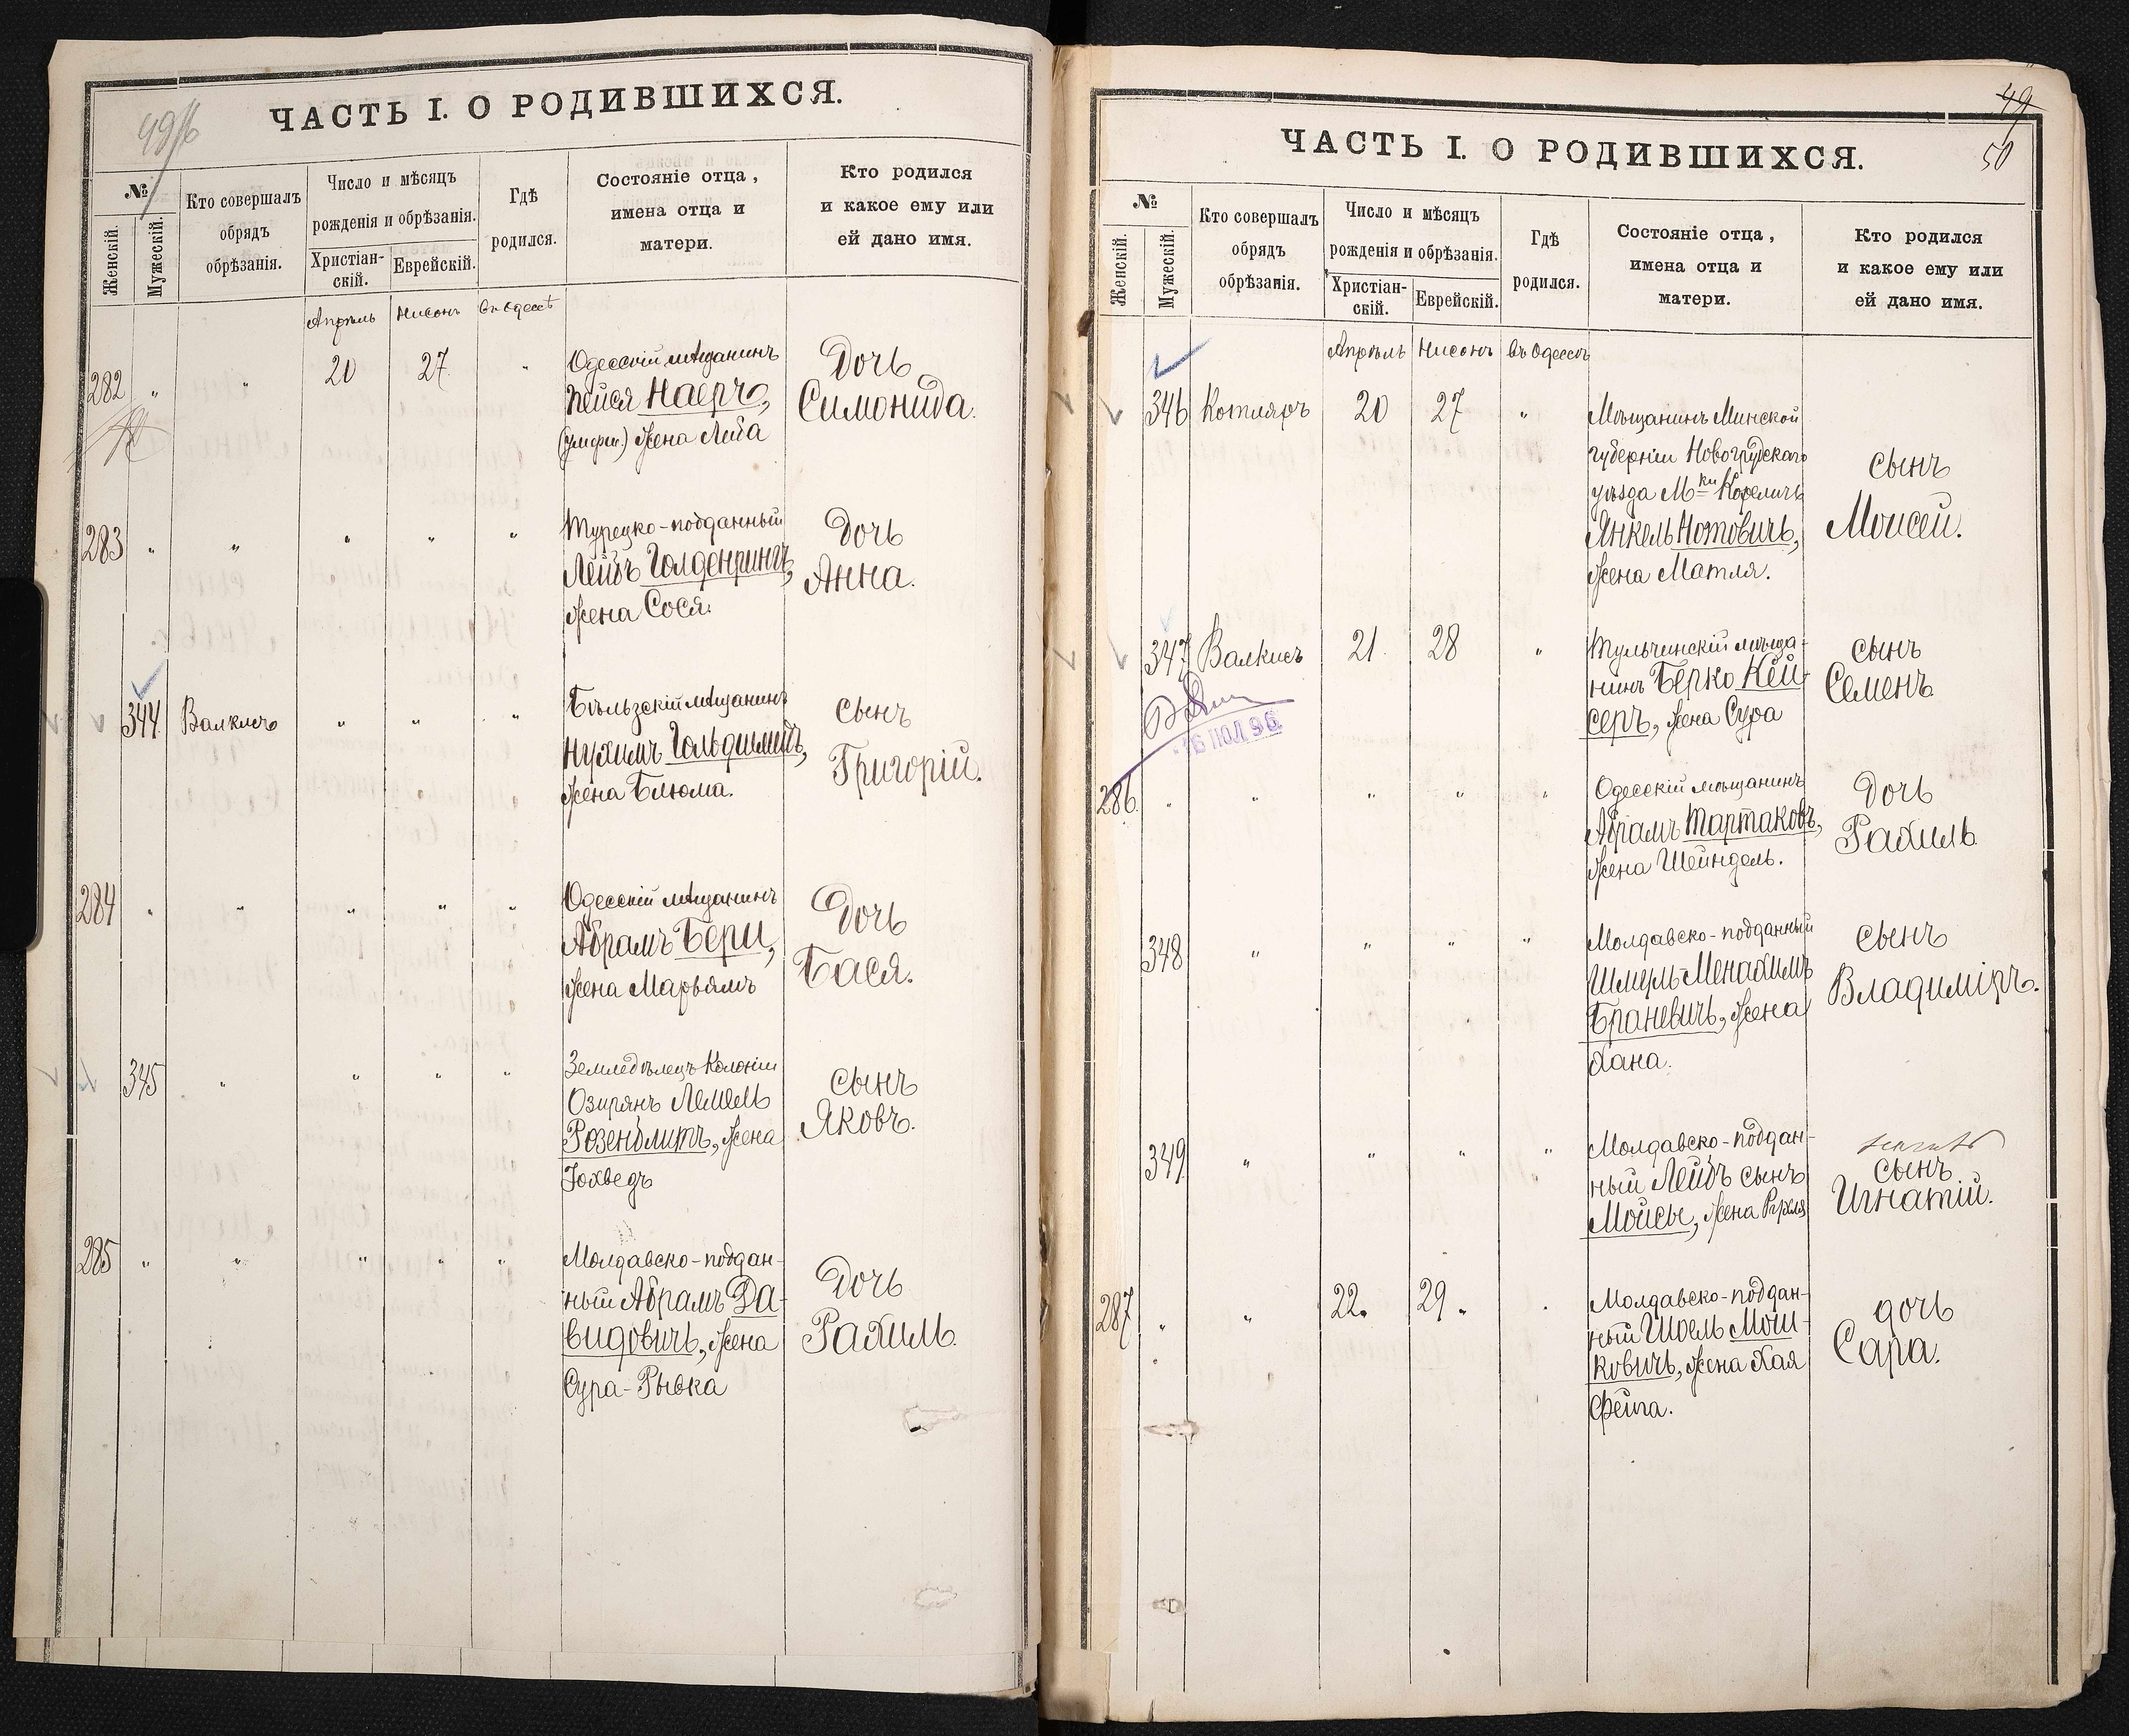 49
ЧАСТЬ I. О РОДИВШИХСЯ.
№
Женскій.
Мужескій.
Кто совершалъ
обрядъ
обрѣзанія.
Число и мѣсяцъ
рожденія и обрѣзанія.
Христіан-
скій.
Еврейскій.
Гдѣ
родился.
Состояніе отца,
имена отца и
матери.
Кто родился
и какое ему или
ей дано имя.
Апрѣль Нисонъ въ Одессѣ
282 " " 20 27 "
Одесскій мѣщанинъ
Пейся Наеръ,
жена Лейа
Дочь
Симонида.
283 " " " " "
Турецко-подданный
Лейбъ Голденрингъ,
жена Сося.
Дочь
Анна.
344 Валкисъ " " "
Бѣльзскій мѣщанинъ
Нухимъ Гольдшмитъ,
жена Блюма.
сынъ
Григорій.
284 " " " " "
Одесскій мѣщанинъ
Абрамъ Бери,
жена Марьямъ
Дочь
Бася.
345 " " " "
Земледѣлецъ Колоніи
Озирянъ Лемель
Розенблитъ, жена
Іохведъ
сынъ
Яковъ.
285 " " " " "
Молдавско-поддан-
ный Абрамъ Да-
видовичъ, жена
Сура-Рывка
Дочь
Рахиль.
49
50
ЧАСТЬ I. О РОДИВШИХСЯ.
№
Женскій.
Мужескій.
Кто совершалъ
обрядъ
обрѣзанія.
Число и мѣсяцъ
рожденія и обрѣзанія.
Христіан-
скій.
Еврейскій.
Гдѣ
родился.
Состояніе отца,
имена отца и
матери.
Кто родился
и какое ему или
ей дано имя.
Апрѣль Нисонъ въ Одессѣ
346 Котляръ 20 27 "
Мѣщанинъ Минской
губерніи Новогрудскаго
уѣзда М-ки Кореличъ
Янкель Нотовичъ,
жена Матля.
сынъ
Моисей.
347 Валкисъ 21 28 "
Тульчинскій мѣща-
нинъ Берко Кей-
серъ, жена Сура
сынъ
Семенъ
286 " " " " "
Одесскій мѣщанинъ
Абрамъ Тартаковъ,
жена Шейндель.
Дочь
Рахиль
348 " " " "
Молдавско-подданный
Шмуль-Менахимъ
Браневичъ, жена
Хана.
сынъ
Владиміръ.
349 " " " "
Молдавско-поддан-
ный Лейбъ сынъ
Мойсы, жена Рухля
сынъ
Игнатій.
287 " " 22. 29. "
Молдавско-поддан-
ный Шоель Мош-
ковичъ, жена Хая
Фейга.
дочь
Сара.